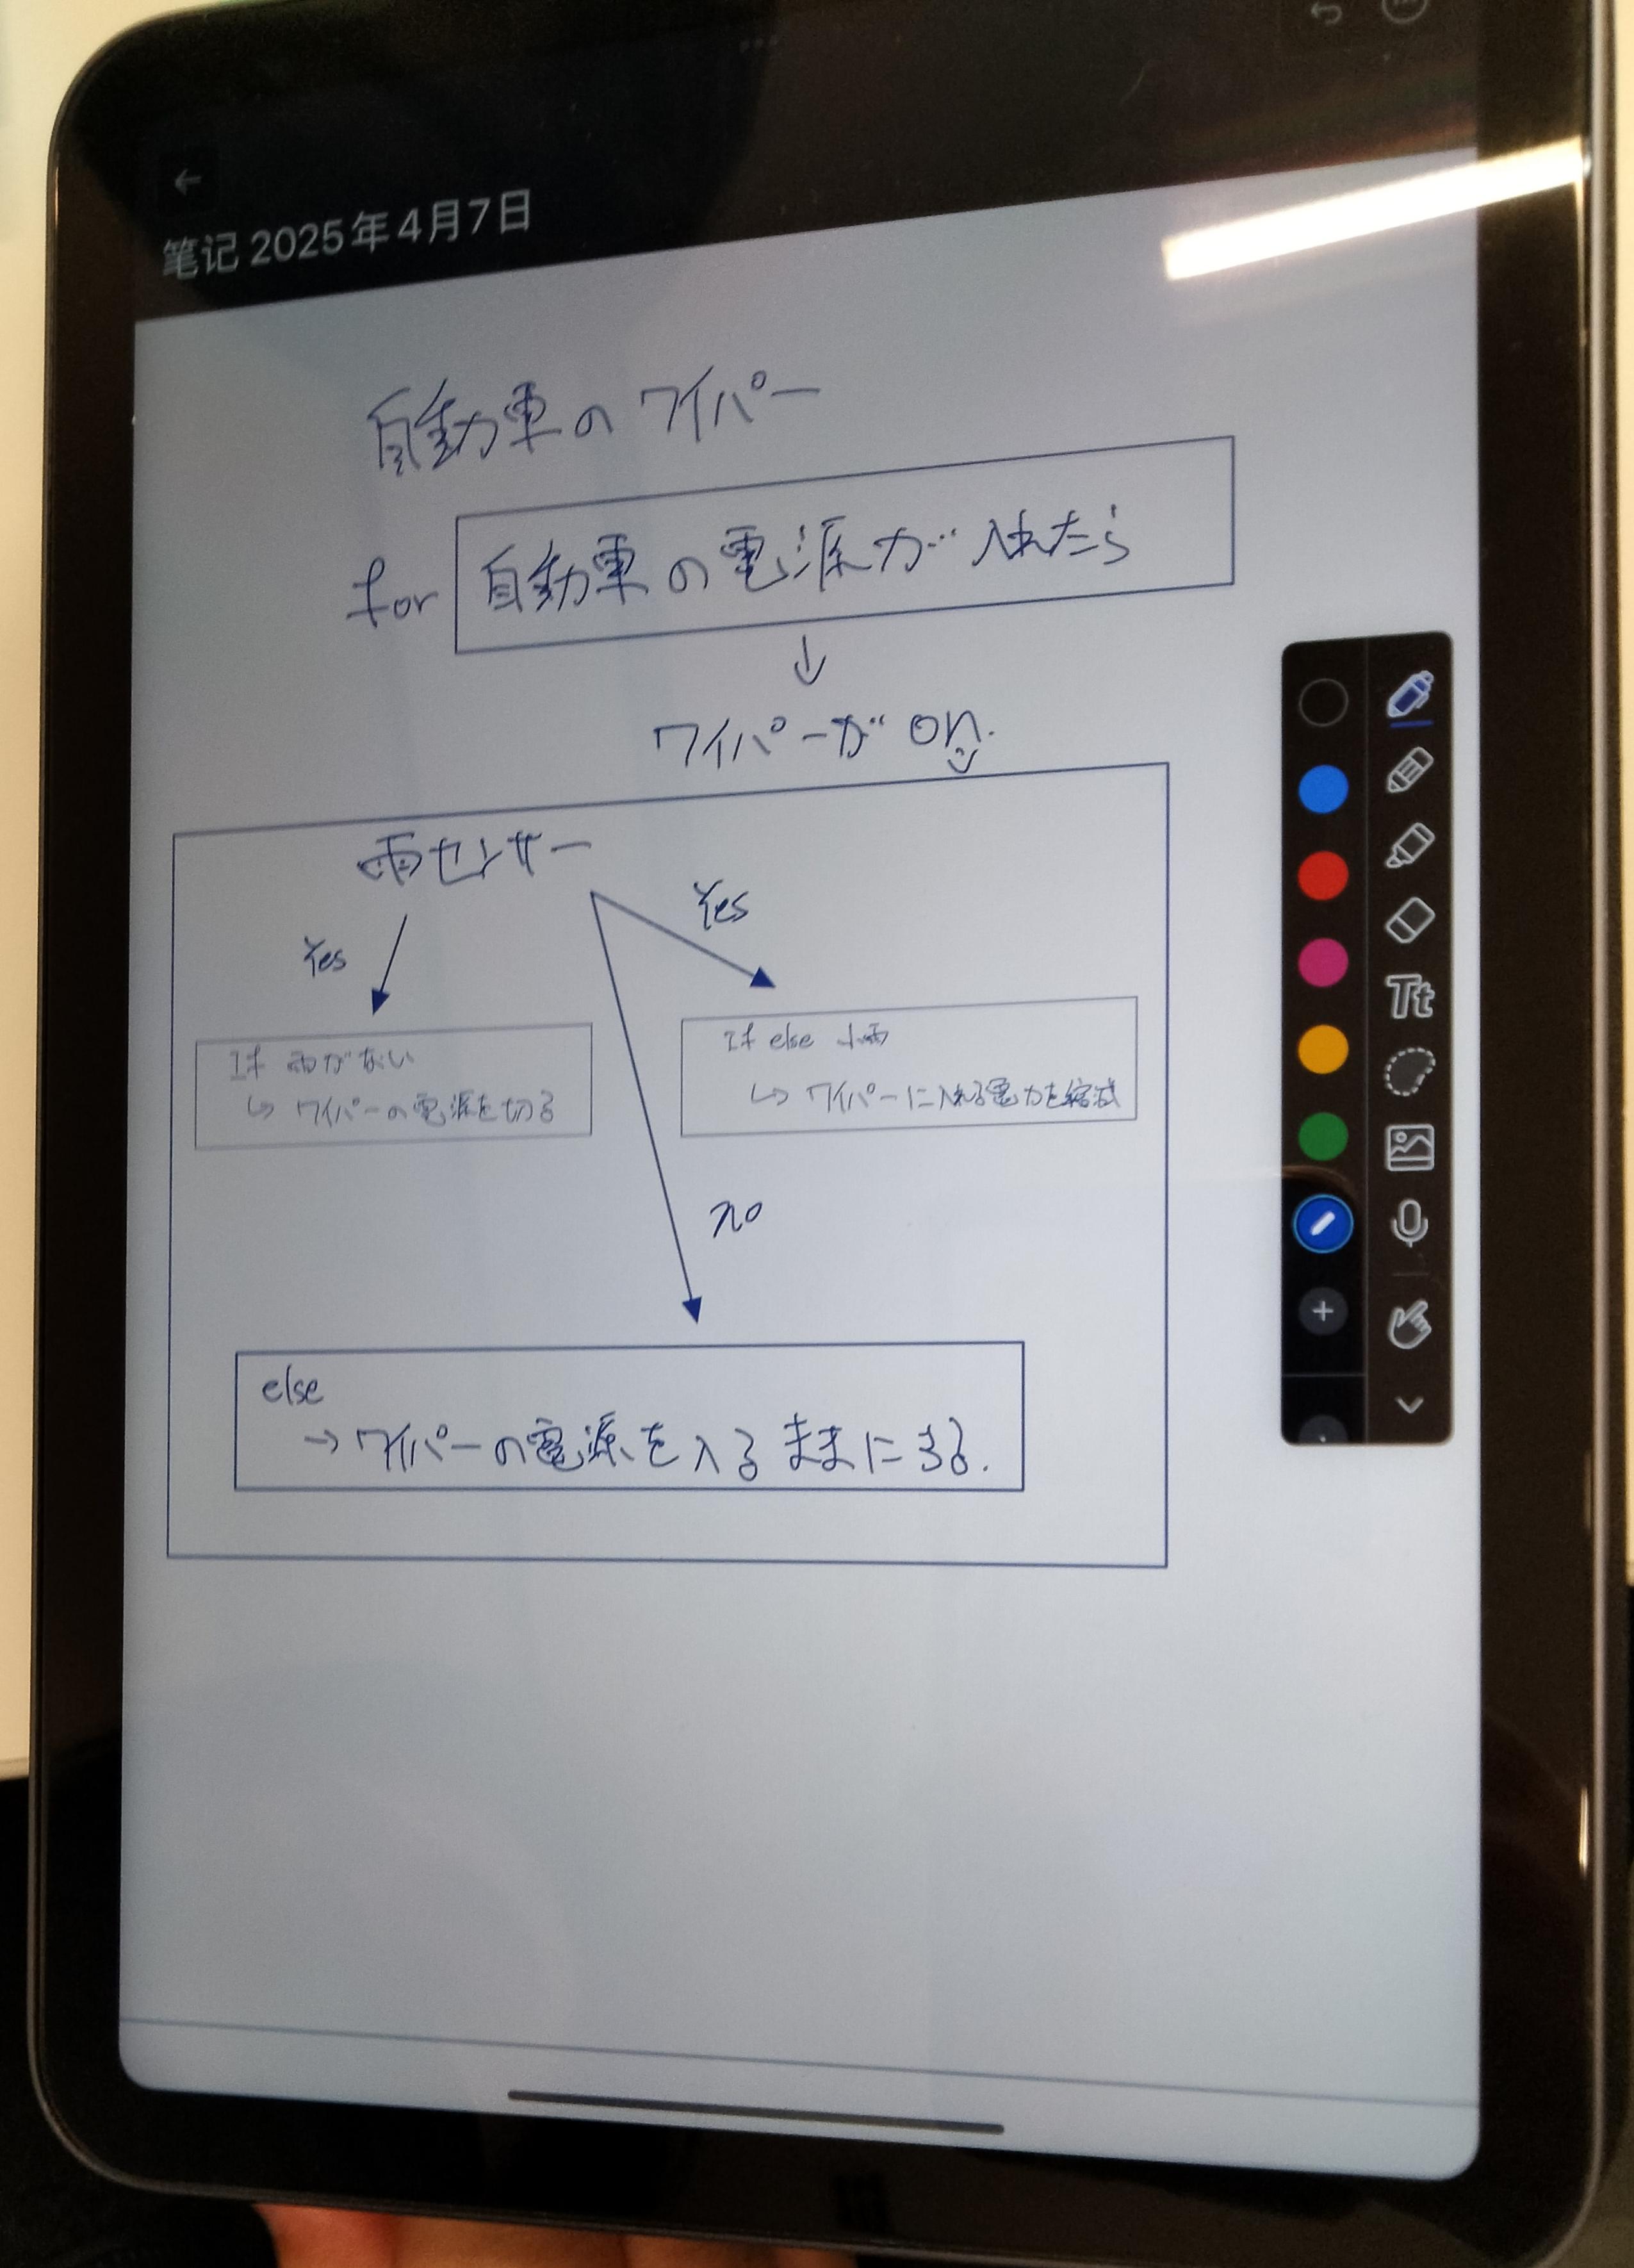 笔记 2025年4月7日
自動車のワイパー
for 自動車の電源が入れたら
↓
ワイパーが on.
雨センサー
Yes
Yes
If 雨がない
↳ ワイパーの電源を切る
If else 小雨
↳ ワイパーに入れる電力を縮減
no
else
→ ワイパーの電源を入るままにする.
Tt